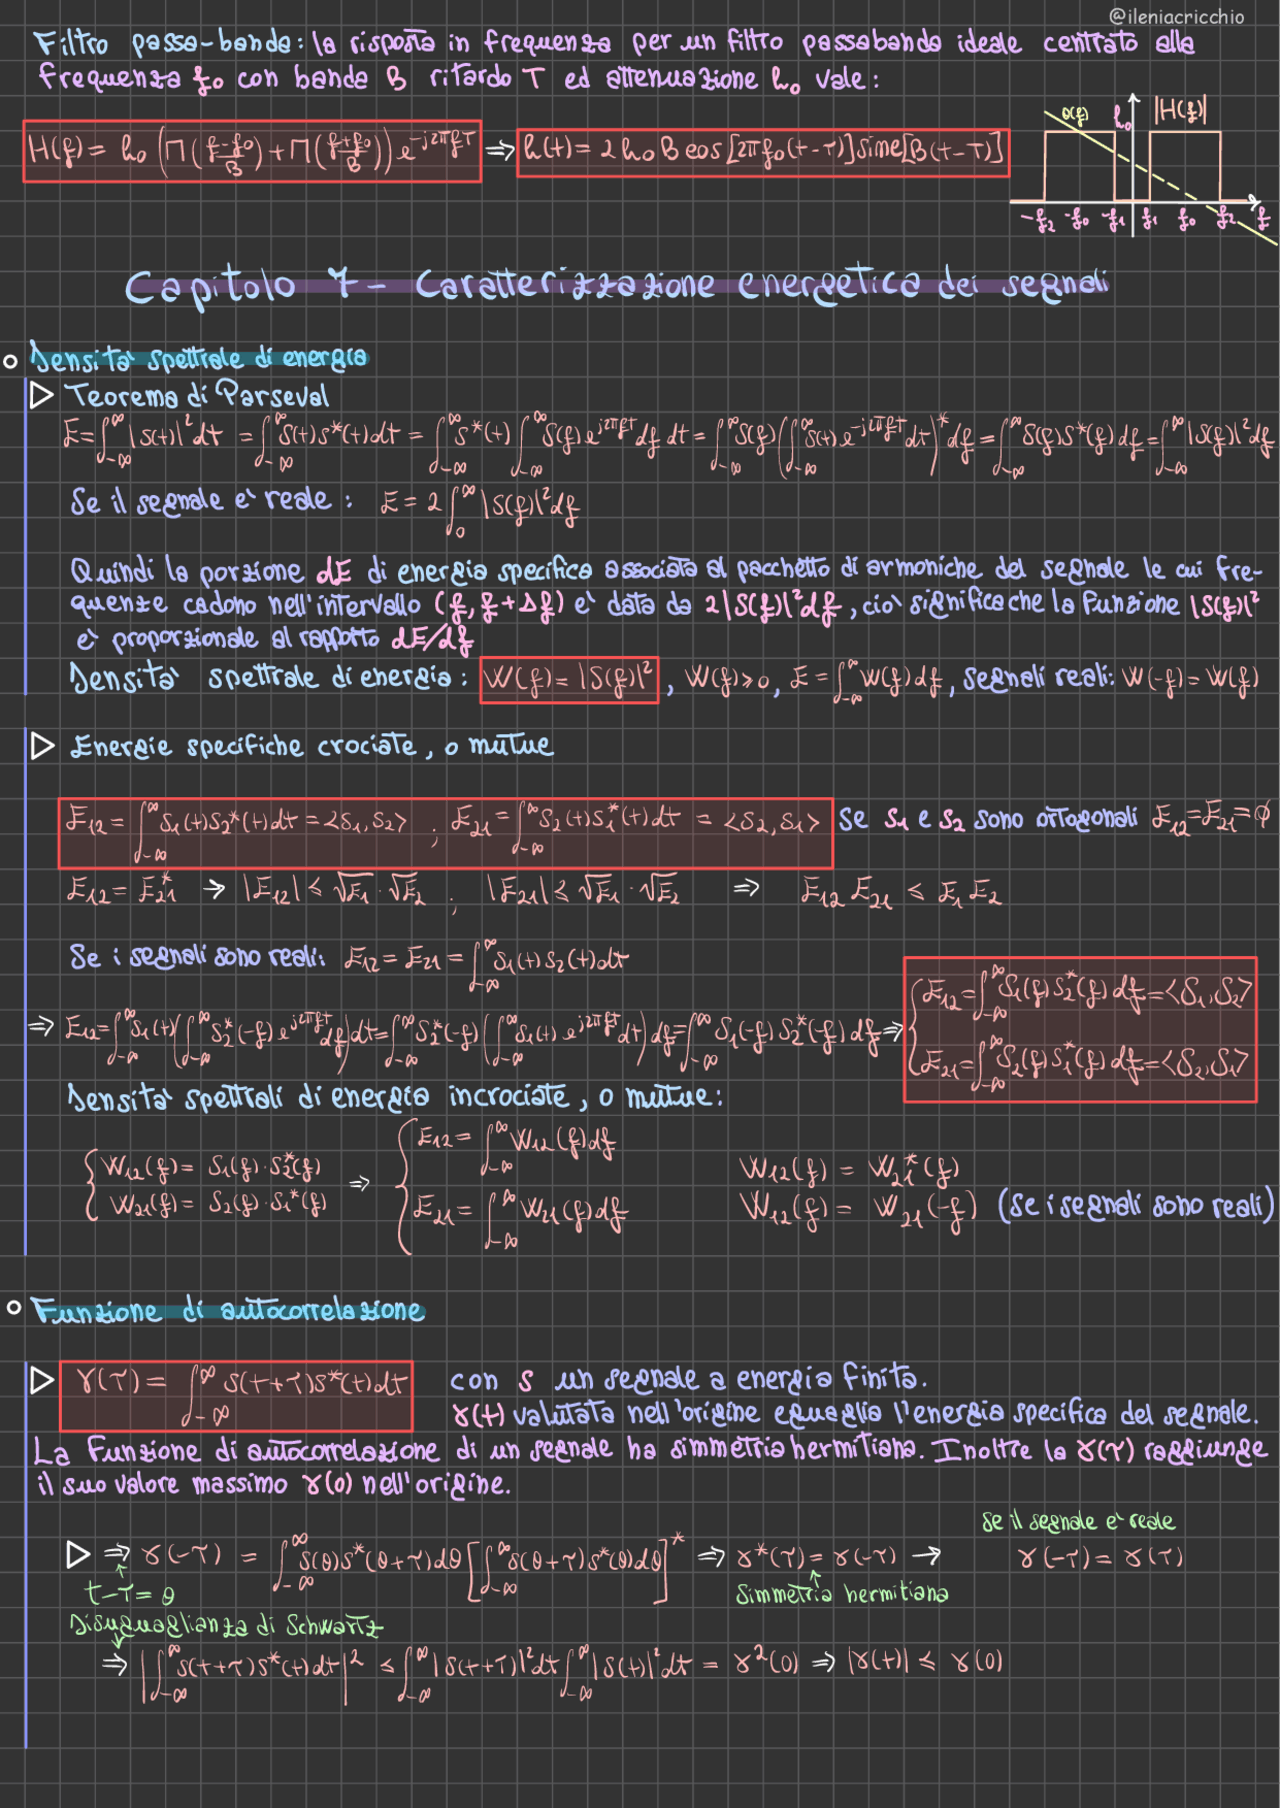 @ileniacricchio
Filtro passa-banda: la risposta in frequenza per un filtro passabanda ideale centrato alla
frequenza f₀ con banda B ritardo T ed attenuazione h₀ vale:
H(f) = h₀ (Π((f-f₀)/B) + Π((f+f₀)/B)) e^{-j2πfT} ⇒ h(t) = 2h₀B cos[2πf₀(t-T)] sinc[B(t-T)]
θ(f) h₀ |H(f)|
-f₂ -f₀ -f₁ f₁ f₀ f₂ f
Capitolo 7 - Caratterizzazione energetica dei segnali
Densita' spettrale di energia
Teorema di Parseval
E = ∫_{-∞}^{∞} |s(t)|² dt = ∫_{-∞}^{∞} s(t)s*(t)dt = ∫_{-∞}^{∞} s*(t) ∫_{-∞}^{∞} S(f)e^{j2πft}df dt = ∫_{-∞}^{∞} S(f) (∫_{-∞}^{∞} s(t)e^{-j2πft}dt)* df = ∫_{-∞}^{∞} S(f)S*(f)df = ∫_{-∞}^{∞} |S(f)|² df
Se il segnale e' reale: E = 2 ∫_{0}^{∞} |S(f)|² df
Quindi la porzione dE di energia specifica associata al pacchetto di armoniche del segnale le cui fre-
quenze cadono nell'intervallo (f, f+Δf) e' data da 2|S(f)|²df, cio' significa che la funzione |S(f)|²
e' proporzionale al rapporto dE/df
Densita' spettrale di energia: W(f) = |S(f)|², W(f)≥0, E = ∫_{-∞}^{∞} W(f)df, segnali reali: W(-f) = W(f)
Energie specifiche crociate, o mutue
E₁₂ = ∫_{-∞}^{∞} s₁(t)s₂*(t)dt = <s₁,s₂> ; E₂₁ = ∫_{-∞}^{∞} s₂(t)s₁*(t)dt = <s₂,s₁> Se s₁ e s₂ sono ortogonali E₁₂=E₂₁=∅
E₁₂ = E₂₁* → |E₁₂| ≤ √E₁ · √E₂ ; |E₂₁| ≤ √E₁ · √E₂ ⇒ E₁₂ E₂₁ ≤ E₁ E₂
Se i segnali sono reali: E₁₂ = E₂₁ = ∫_{-∞}^{∞} s₁(t)s₂(t)dt
⇒ E₁₂ = ∫_{-∞}^{∞} s₁(t) (∫_{-∞}^{∞} S₂*(-f)e^{j2πft}df) dt = ∫_{-∞}^{∞} S₂*(-f) (∫_{-∞}^{∞} s₁(t)e^{j2πft}dt) df = ∫_{-∞}^{∞} S₁(-f)S₂*(-f)df ⇒
{ E₁₂ = ∫_{-∞}^{∞} S₁(f)S₂*(f)df = <S₁,S₂>
E₂₁ = ∫_{-∞}^{∞} S₂(f)S₁*(f)df = <S₂,S₁>
Densita' spettrali di energia incrociate, o mutue:
{ W₁₂(f) = S₁(f)·S₂*(f) ⇒ { E₁₂ = ∫_{-∞}^{∞} W₁₂(f)df W₁₂(f) = W₂₁*(f)
W₂₁(f) = S₂(f)·S₁*(f) E₂₁ = ∫_{-∞}^{∞} W₂₁(f)df W₁₂(f) = W₂₁(-f) (se i segnali sono reali)
Funzione di autocorrelazione
γ(τ) = ∫_{-∞}^{∞} s(t+τ)s*(t)dt con s un segnale a energia finita.
γ(t) valutata nell'origine eguaglia l'energia specifica del segnale.
La funzione di autocorrelazione di un segnale ha simmetria hermitiana. Inoltre la γ(τ) raggiunge
il suo valore massimo γ(0) nell'origine.
Se il segnale e' reale
⇒ γ(-τ) = ∫_{-∞}^{∞} s(θ)s*(θ+τ)dθ [∫_{-∞}^{∞} s(θ+τ)s*(θ)dθ]* ⇒ γ*(τ) = γ(-τ) → γ(-τ) = γ(τ)
t-τ=θ Simmetria hermitiana
Disuguaglianza di Schwartz
⇒ |∫_{-∞}^{∞} s(t+τ)s*(t)dt|² ≤ ∫_{-∞}^{∞} |s(t+τ)|²dt ∫_{-∞}^{∞} |s(t)|²dt = γ²(0) ⇒ |γ(t)| ≤ γ(0)